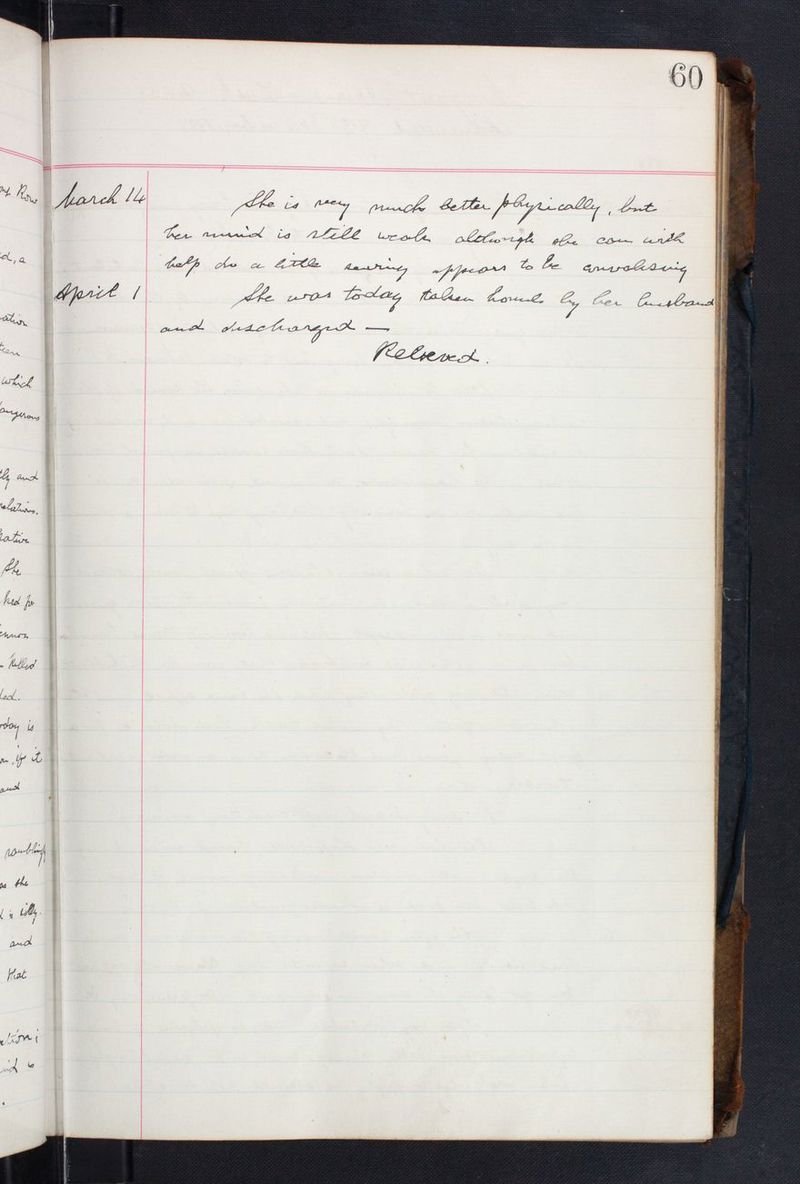 60
March 14 She is very much better physically, but
her mind is still weak although she can with
help do a little sewing appears to be convalesing
April 1 She was today taken home by her husband
and discharged —
Relieved.
ation
which
angerous
tly and
elations.
She
ked for
Killed
day is
if it
and
rambling
as she
and
that